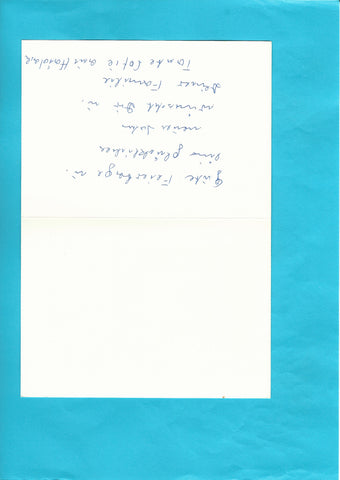 Gute Feiertage u.
ein glückliches
neues Jahr
wünscht Dir u.
Deiner Familie
Tante Sofie aus Haidlag